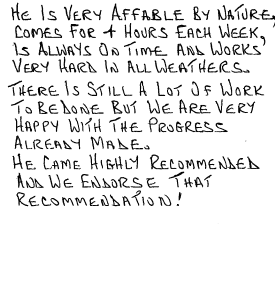 He Is Very Affable By Nature,
Comes For 4 Hours Each Week,
Is Always On Time And Works
Very Hard In All Weathers.
There Is Still A Lot Of Work
To Be Done But We Are Very
Happy With The Progress
Already Made.
He Came Highly Recommended
And We Endorse That
Recommendation!